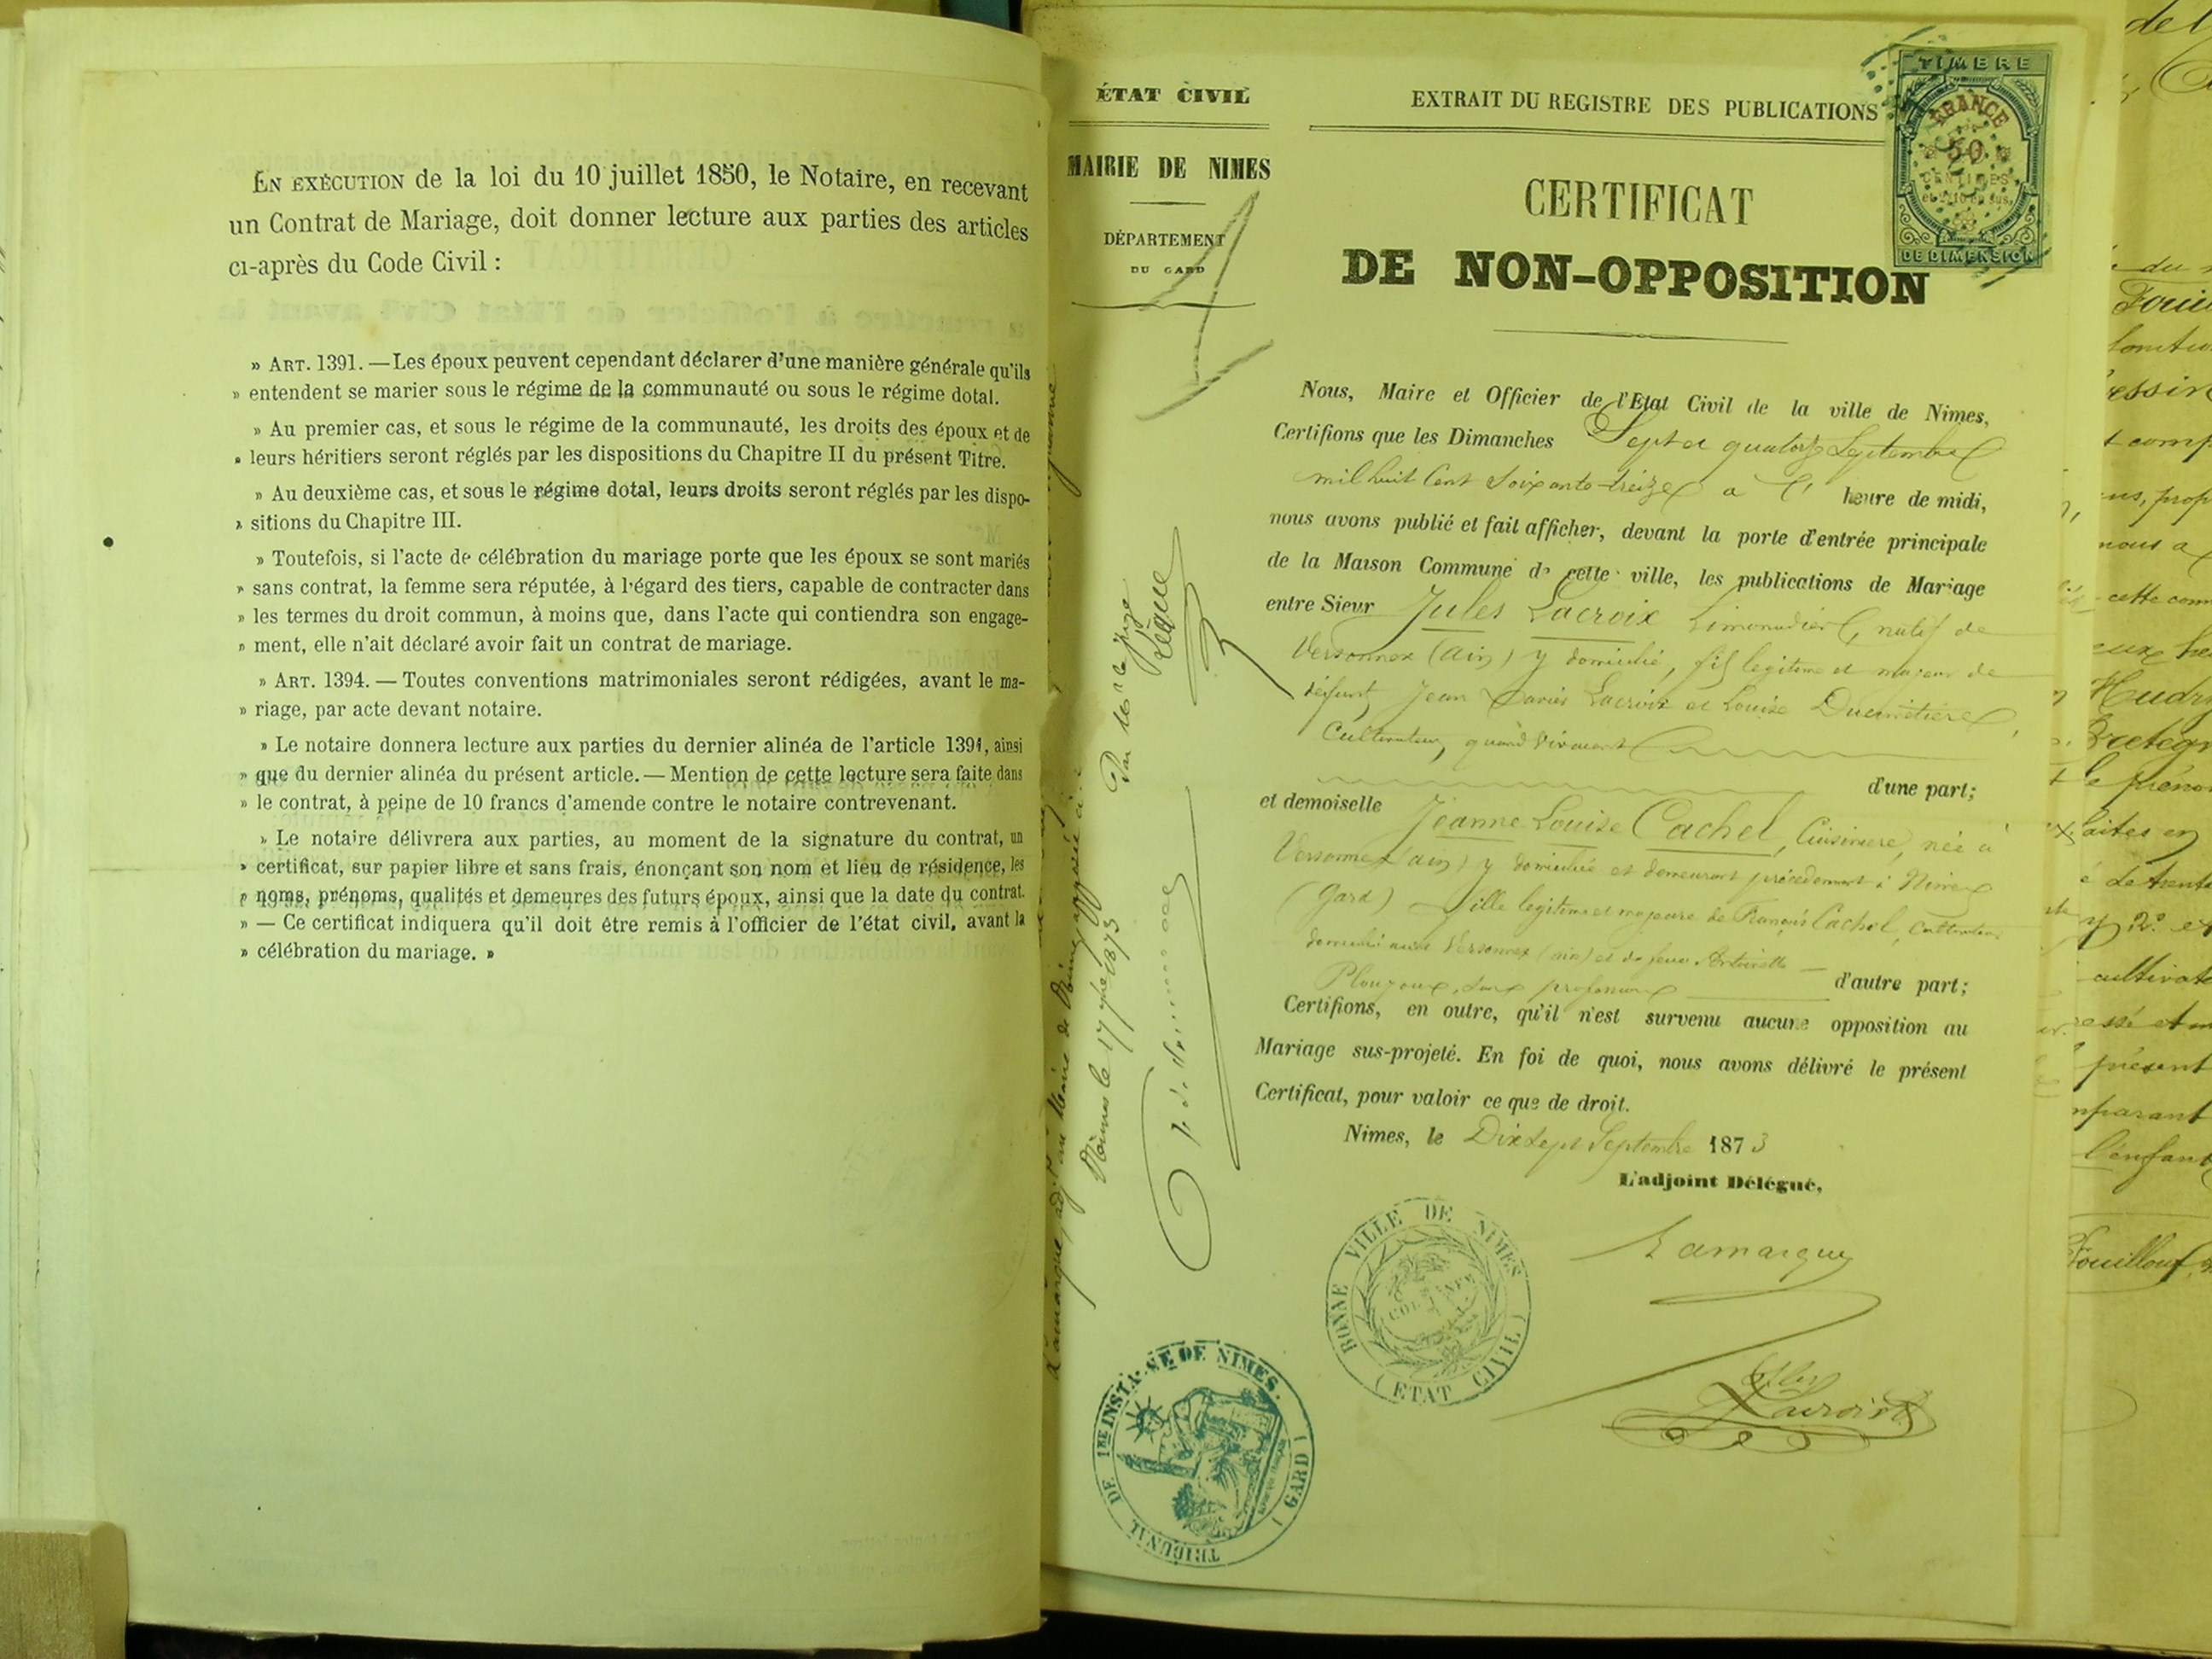 EN EXÉCUTION de la loi du 10 juillet 1850, le Notaire, en recevant
un Contrat de Mariage, doit donner lecture aux parties des articles
ci-après du Code Civil :
» ART. 1391. — Les époux peuvent cependant déclarer d'une manière générale qu'ils
» entendent se marier sous le régime de la communauté ou sous le régime dotal.
» Au premier cas, et sous le régime de la communauté, les droits des époux et de
» leurs héritiers seront réglés par les dispositions du Chapitre II du présent Titre.
» Au deuxième cas, et sous le régime dotal, leurs droits seront réglés par les dispo-
» sitions du Chapitre III.
» Toutefois, si l'acte de célébration du mariage porte que les époux se sont mariés
» sans contrat, la femme sera réputée, à l'égard des tiers, capable de contracter dans
» les termes du droit commun, à moins que, dans l'acte qui contiendra son engage-
» ment, elle n'ait déclaré avoir fait un contrat de mariage.
» ART. 1394. — Toutes conventions matrimoniales seront rédigées, avant le ma-
» riage, par acte devant notaire.
» Le notaire donnera lecture aux parties du dernier alinéa de l'article 1391, ainsi
» que du dernier alinéa du présent article. — Mention de cette lecture sera faite dans
» le contrat, à peine de 10 francs d'amende contre le notaire contrevenant.
» Le notaire délivrera aux parties, au moment de la signature du contrat, un
» certificat, sur papier libre et sans frais, énonçant son nom et lieu de résidence, les
» noms, prénoms, qualités et demeures des futurs époux, ainsi que la date du contrat.
» — Ce certificat indiquera qu'il doit être remis à l'officier de l'état civil, avant la
» célébration du mariage. »
ÉTAT CIVIL
MAIRIE DE NIMES
DÉPARTEMENT
DU GARD
EXTRAIT DU REGISTRE DES PUBLICATIONS
TIMBRE
FRANCE
50
CENTIMES
DE DIMENSION
CERTIFICAT
DE NON-OPPOSITION
Nous, Maire et Officier de l'Etat Civil de la ville de Nimes,
Certifions que les Dimanches Sept et quatorze Septembre
mil huit Cent Soixante-treize a l' heure de midi,
nous avons publié et fait afficher, devant la porte d'entrée principale
de la Maison Commune de cette ville, les publications de Mariage
entre Sieur Jules Lacroix Limonadier, natif de
Versonnex (ain) y domicilié, fils legitime et majeur de
défunts Jean Lacroix et Louise
Cultivateurs, quand vivaient
d'une part;
et demoiselle Jeanne Louise Cachel, Cuisiniere, née à
Versonnex (ain) y domiciliée et demeurant précédemment à Nimes
(Gard) fille legitime et majeure de François Cachel, Cultivateur
domicilié aussi Versonnex (ain) et de feue Antoinette
sans profession d'autre part;
Certifions, en outre, qu'il n'est survenu aucune opposition au
Mariage sus-projeté. En foi de quoi, nous avons délivré le présent
Certificat, pour valoir ce que de droit.
Nimes, le Dix Sept Septembre 1873
L'adjoint Délégué,
Lamarque
Lacroix
BONNE VILLE DE NIMES
( ETAT CIVIL )
TRIBUNAL DE 1RE INSTANCE DE NIMES.
( GARD )
Nimes le 17 7bre 1873